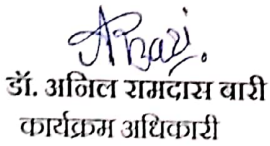 डॉ. अनिल रामदास बारी
कार्यक्रम अधिकारी